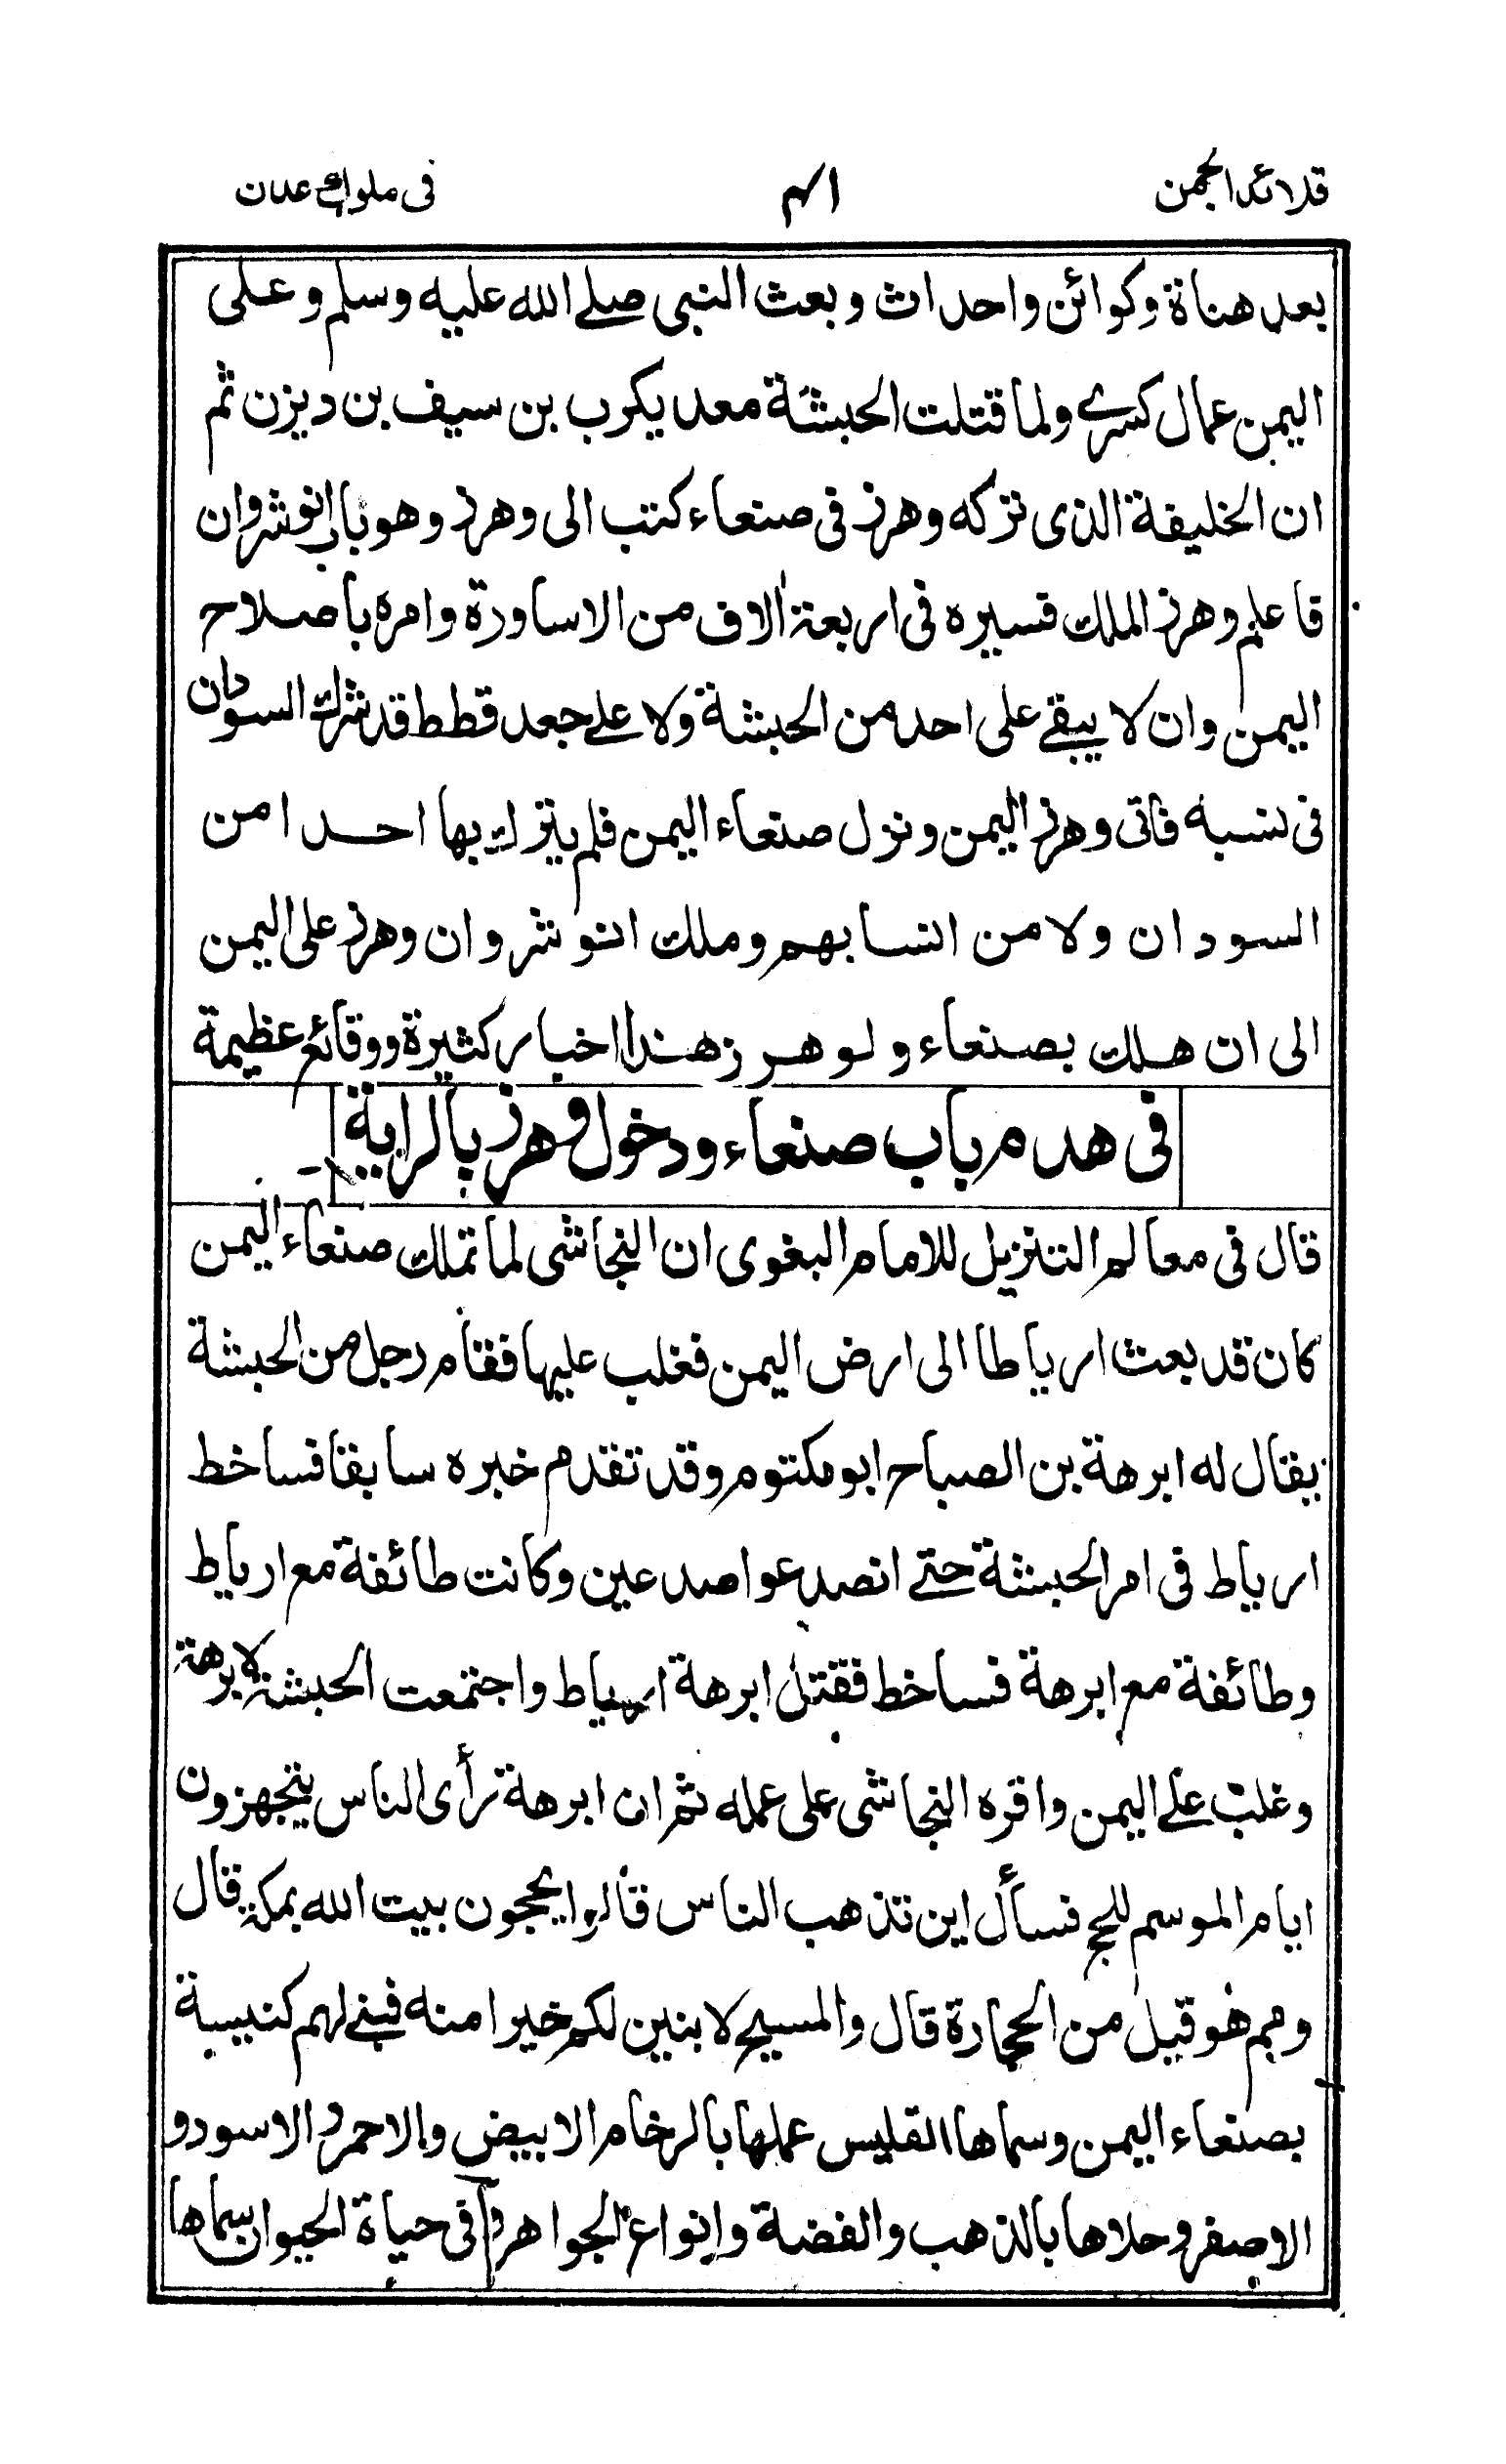 قلائد الجمن ٤١ فى ملوك عدن
بعد هناة وكوائن واحداث وبعث النبى صلے الله عليه وسلم وعلى
اليمن عمال كسرے ولما قتلت الحبشة معد يكرب بن سيف بن ديزن ثم
ان الخليفة الذى تركه وهرز فى صنعاء كتب الى وهرز وهو بباب انوشروان
فاعلم وهرز الملك فسيره فى اربعة الاف من الاساورة وامره باصلاح
اليمن وان لا يبقے على احد من الحبشة ولا علے جعد قطط قد شرك السودان
فى نسبه فاتى وهرز اليمن ونزل صنعاء اليمن فلم يترك بها احدا من
السودان ولا من انسابهم وملك انوشروان وهرز على اليمن
الى ان هلك بصنعاء ولوهرز هذا اخبار كثيرة ووقائع عظيمة
فى هدم باب صنعاء ودخول وهرز بالراية
قال فى معالم التنزيل للامام البغوى ان النجاشى لما تملك صنعاء اليمن
كان قد بعث ارياطا الى ارض اليمن فغلب عليها فقام رجل من الحبشة
يقال له ابرهة بن الصباح ابو مكتوم وقد تقدم خبره سابقا فساخط
ارياط فى امر الحبشة حتے انصدعوا صدعين وكانت طائفة مع ارياط
وطائفة مع ابرهة فساخط فقتل ابرهة ارياط واجتمعت الحبشة لابرهة
وغلب علے اليمن واقره النجاشى على عمله ثم ان ابرهة ترأى الناس يتجهزون
ايام الموسم للحج فسأل اين تذهب الناس قالوا يحجون بيت الله بمكة قال
ومم هو قيل من الحجارة قال والمسيح لابنين لكم خيرا منه فبنے لهم كنيسة
بصنعاء اليمن وسماها القليس عملها بالرخام الابيض والاحمر والاسود و
الاصفر وحلاها بالذهب والفضة وانواع الجواهر و فى حياة الحيوان سماها